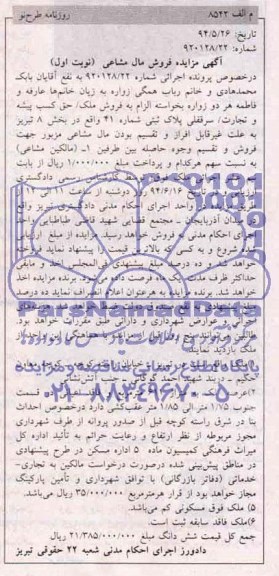 م الف ۸۵۴۲
روزنامه طرح‌نو
تاریخ: ۹۴/۵/۲۶
شماره: ۹۲۰۱۲۸/۲۲
آگهی مزایده فروش مال مشاعی (نوبت اول)
درخصوص پرونده اجرائی شماره ۹۲۰۱۲۸/۲۲ به نفع آقایان بابک
محمدهادی و خانم رباب همگی زواره به زیان خانم‌ها عارفه و
فاطمه هر دو زواره بخواسته الزام به فروش ملک/ حق کسب پیشه
و تجارت/ سرقفلی پلاک ثبتی شماره ۴۱ واقع در بخش ۸ تبریز
به علت غیرقابل افراز و تقسیم بودن مال مشاعی مزبور جهت
فروش و تقسیم وجوه حاصله بین طرفین ۱ـ (مالکین مشاعی)
به نسبت سهم هرکدام و پرداخت مبلغ ۱/۰۰۰/۰۰۰ ریال از بابت
کارشناس رسمی دادگستری
تاریخ ۹۴/۶/۱۶ روز دوشنبه از ساعت ۱۱ الی ۱۲
واحد اجرای احکام مدنی دادگستری تبریز واقع
میدان آذربایجان ـ مجتمع قضایی شهید قاضی طباطبایی واحد
اجرای احکام مدنی به فروش خواهد رسید. مزایده از مبلغ ارزیابی
شده شروع و به کسی که بالاترین قیمت را پیشنهاد نماید فروخته
خواهد شد. ده درصد مبلغ پیشنهادی فی‌المجلس اخذ و مابقی
حداکثر ظرف مدت یک ماه فرصت داده می‌شود برنده مزایده اخذ
خواهد شد. برنده مزایده به هرعنوان اعلام انصراف نماید ده درصد
اجرائی و عوارض شهرداری و دارائی طبق مقررات خواهد بود.
ملک بازدید نمایند.
حکیم ـ دربند شهید احمد کوکانی ـ جنب آتش‌نشانی
جنوب ۱/۷۵ متر الی ۱/۸۵ متر عقب‌کشی دارد درخصوص احداث
بنا در شرق راسته کوچه قبل از صدور پروانه از طرف شهرداری
مجوز مربوطه از نظر ارتفاع و رعایت حرائم به تأئید اداره کل
میراث فرهنگی کمیسیون ماده ۵ اداره مسکن در طرح پیشنهادی
در مناطق پیش‌بینی شده درصورت درخواست مالکین به تجاری-
خدماتی (دفاتر بازرگانی) با توافق شهرداری و تأمین پارکینگ
مجاز خواهد بود از قرار هرمترمربع ۳۵/۰۰۰/۰۰۰ ریال می‌باشد.
۵) ملک فوق مسکونی کم می‌باشد.
۶) ملک فاقد سابقه ثبت است.
جمع کل قیمت شش دانگ مبلغ ۲۱/۳۸۵/۰۰۰/۰۰۰ ریال
دادورز اجرای احکام مدنی شعبه ۲۲ حقوقی تبریز
ParsNamadData
پایگاه اطلاع رسانی مناقصه و مزایده
۰۲۱-۸۸۳۴۹۶۷۰-۵